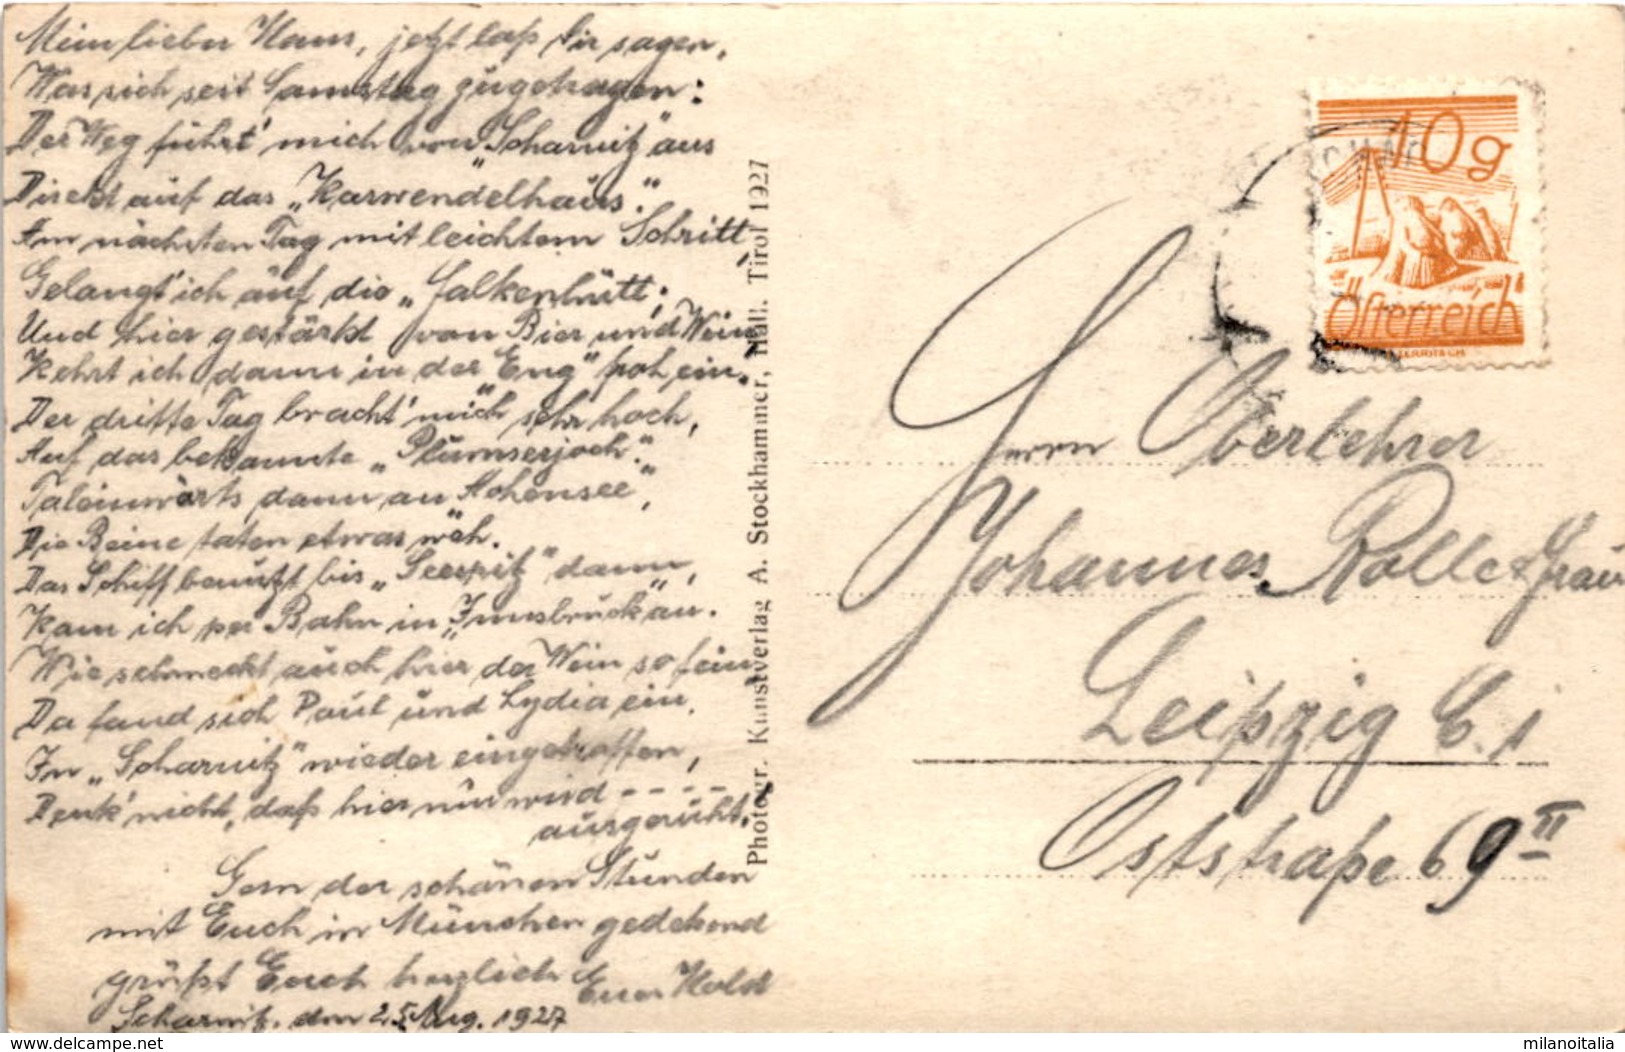 Mein lieber Hans, jetzt laß Dir sagen,
Was sich seit Samstag zugetragen:
Der Weg führt' mich von "Scharnitz" aus
Direkt auf das „Karwendelhaus".
Am nächsten Tag mit leichtem Schritt,
Gelangt' ich auf die „Falkenhütt",
Und hier gestärkt von Bier und Wein,
Kehrt ich dann in der Eng" froh ein.
Der dritte Tag bracht' mich sehr hoch,
Auf das bekannte „Plumserjoch".
Taleinwärts dann an Achensee",
Die Beine taten etwas weh.
Das Schiff benützt bis „Seespitz" dann,
Kam ich per Bahn in „Innsbruck" an.
Wie schmeckt auch hier der Wein so fein
Da fand sich Paul und Lydia ein.
In „Scharnitz" wieder eingetroffen,
Denk' nicht, daß hier nur wird - - - -
ausgeruht.
Gern der schönen Stunden
mit Euch in München gedekend
grüßt Euch herzlich Euer Hold
Scharnitz, den 25. Aug. 1927
Photogr. Kunstverlag A. Stockhammer, Hall. Tirol 1927
10g
Österreich
Herrn Oberlehrer
Johannes Rolle & Frau
Leipzig C. 1
Oststraße 69 II
www.delcampe.net
milanoitalia